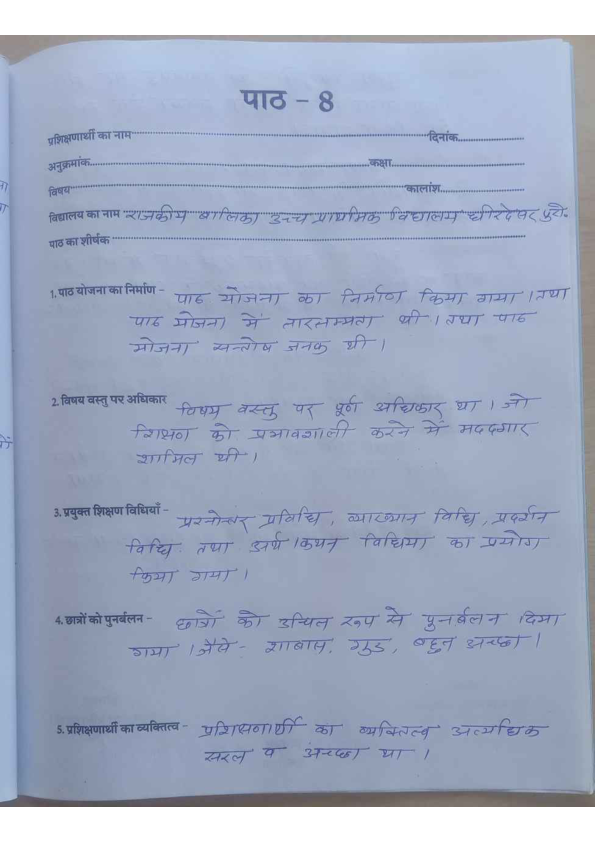 पाठ – 8
प्रशिक्षणार्थी का नाम दिनांक
अनुक्रमांक कक्षा
विषय कालांश
विद्यालय का नाम राजकीय बालिका उच्च प्राथमिक विद्यालय
पाठ का शीर्षक
1. पाठ योजना का निर्माण – पाठ योजना का निर्माण किया गया । तथा
पाठ योजना में तारतम्यता थी । तथा पाठ
योजना सन्तोष जनक थी ।
2. विषय वस्तु पर अधिकार विषय वस्तु पर पूर्ण अधिकार था । जो
शिक्षण को प्रभावशाली करने में मददगार
शामिल थी ।
3. प्रयुक्त शिक्षण विधियाँ – प्रश्नोत्तर प्रविधि, व्याख्यान विधि, प्रदर्शन
विधि तथा अर्थ कथन विधिया का प्रयोग
किया गया ।
4. छात्रों को पुनर्बलन – छात्रों को उचित रूप से पुनर्बलन दिया
गया । जैसे - शाबास, गुड, बहुत अच्छा ।
5. प्रशिक्षणार्थी का व्यक्तित्व – प्रशिक्षणार्थी का व्यक्तित्व अत्यधिक
सरल व अच्छा था ।